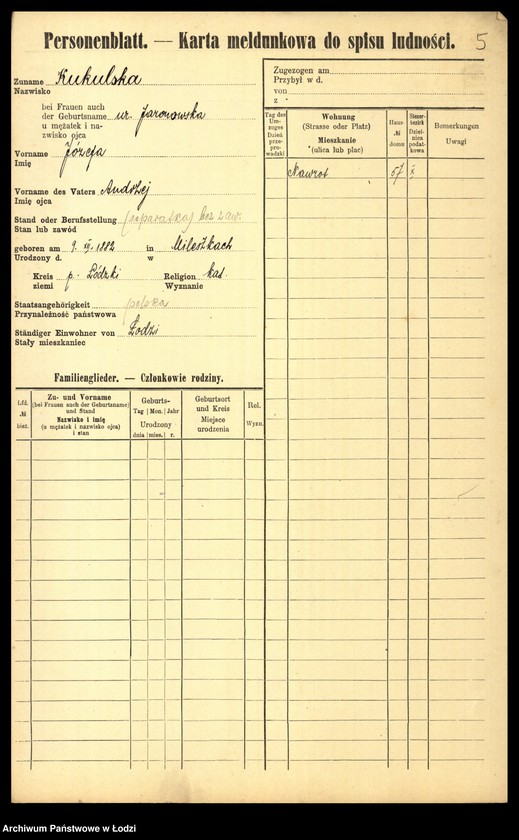 Personenblatt. — Karta meldunkowa do spisu ludności.
5
Zuname Kukulska
Nazwisko
bei Frauen auch
der Geburtsname ur. Jaronowska
u mężatek i na-
zwisko ojca
Vorname Józefa
Imię
Vorname des Vaters Andrzej
Imię ojca
Stand oder Berufsstellung bez zaw.
Stan lub zawód
geboren am 9. 1882 in Mileszkach
Urodzony d. w
Kreis p. Łódzki Religion kat.
ziemi Wyznanie
Staatsangehörigkeit polska
Przynależność państwowa
Ständiger Einwohner von Łodzi
Stały mieszkaniec
Familienglieder. — Członkowie rodziny.
Lfd. № bież.
Zu- und Vorname
(bei Frauen auch der Geburtsname)
und Stand
Nazwisko i imię
(u mężatek i nazwisko ojca)
i stan
Geburts-
Tag Mon. Jahr
Urodzony
dnia mies. r.
Geburtsort
und Kreis
Miejsce
urodzenia
Rel.
Wyzn.
Zugezogen am
Przybył w d.
von
z
Tag des
Um-
zuges
Dzień
prze-
pro-
wadzki
Wohnung
(Strasse oder Platz)
Mieszkanie
(ulica lub plac)
Haus-
№
domu
Steuer-
bezirk
Dziel-
nica
podat-
kowa
Bemerkungen
Uwagi
Nawrot 57
Archiwum Państwowe w Łodzi